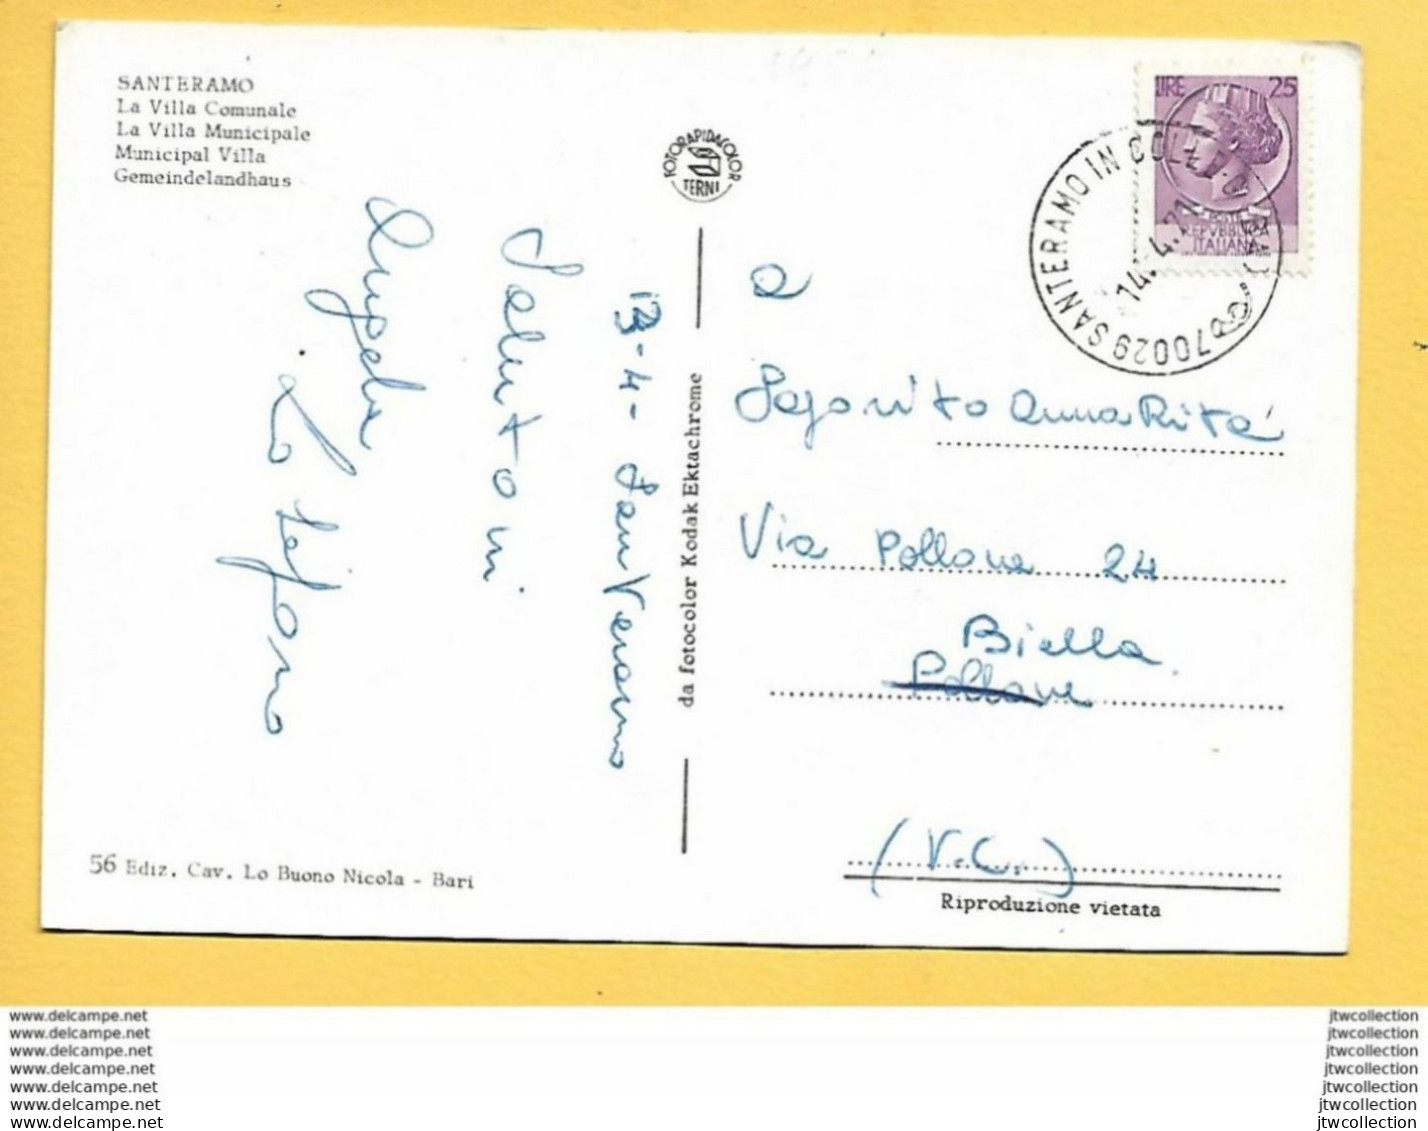 SANTERAMO
La Villa Comunale
La Villa Municipale
Municipal Villa
Gemeindelandhaus
FOTORAPIDACOLOR
TERNI
LIRE 25
POSTE
REPVBBLICA
ITALIANA
70029 SANTERAMO IN COLLE
14.4.71
13-4-
Saluton
Angela
da fotocolor Kodak Ektachrome
a
Anna Rita
Via Pollone 24
Biella
Pollone
(V.C.)
Riproduzione vietata
56 Ediz. Cav. Lo Buono Nicola - Bari
www.delcampe.net
www.delcampe.net
www.delcampe.net
www.delcampe.net
www.delcampe.net
www.delcampe.net
www.delcampe.net
jtwcollection
jtwcollection
jtwcollection
jtwcollection
jtwcollection
jtwcollection
jtwcollection